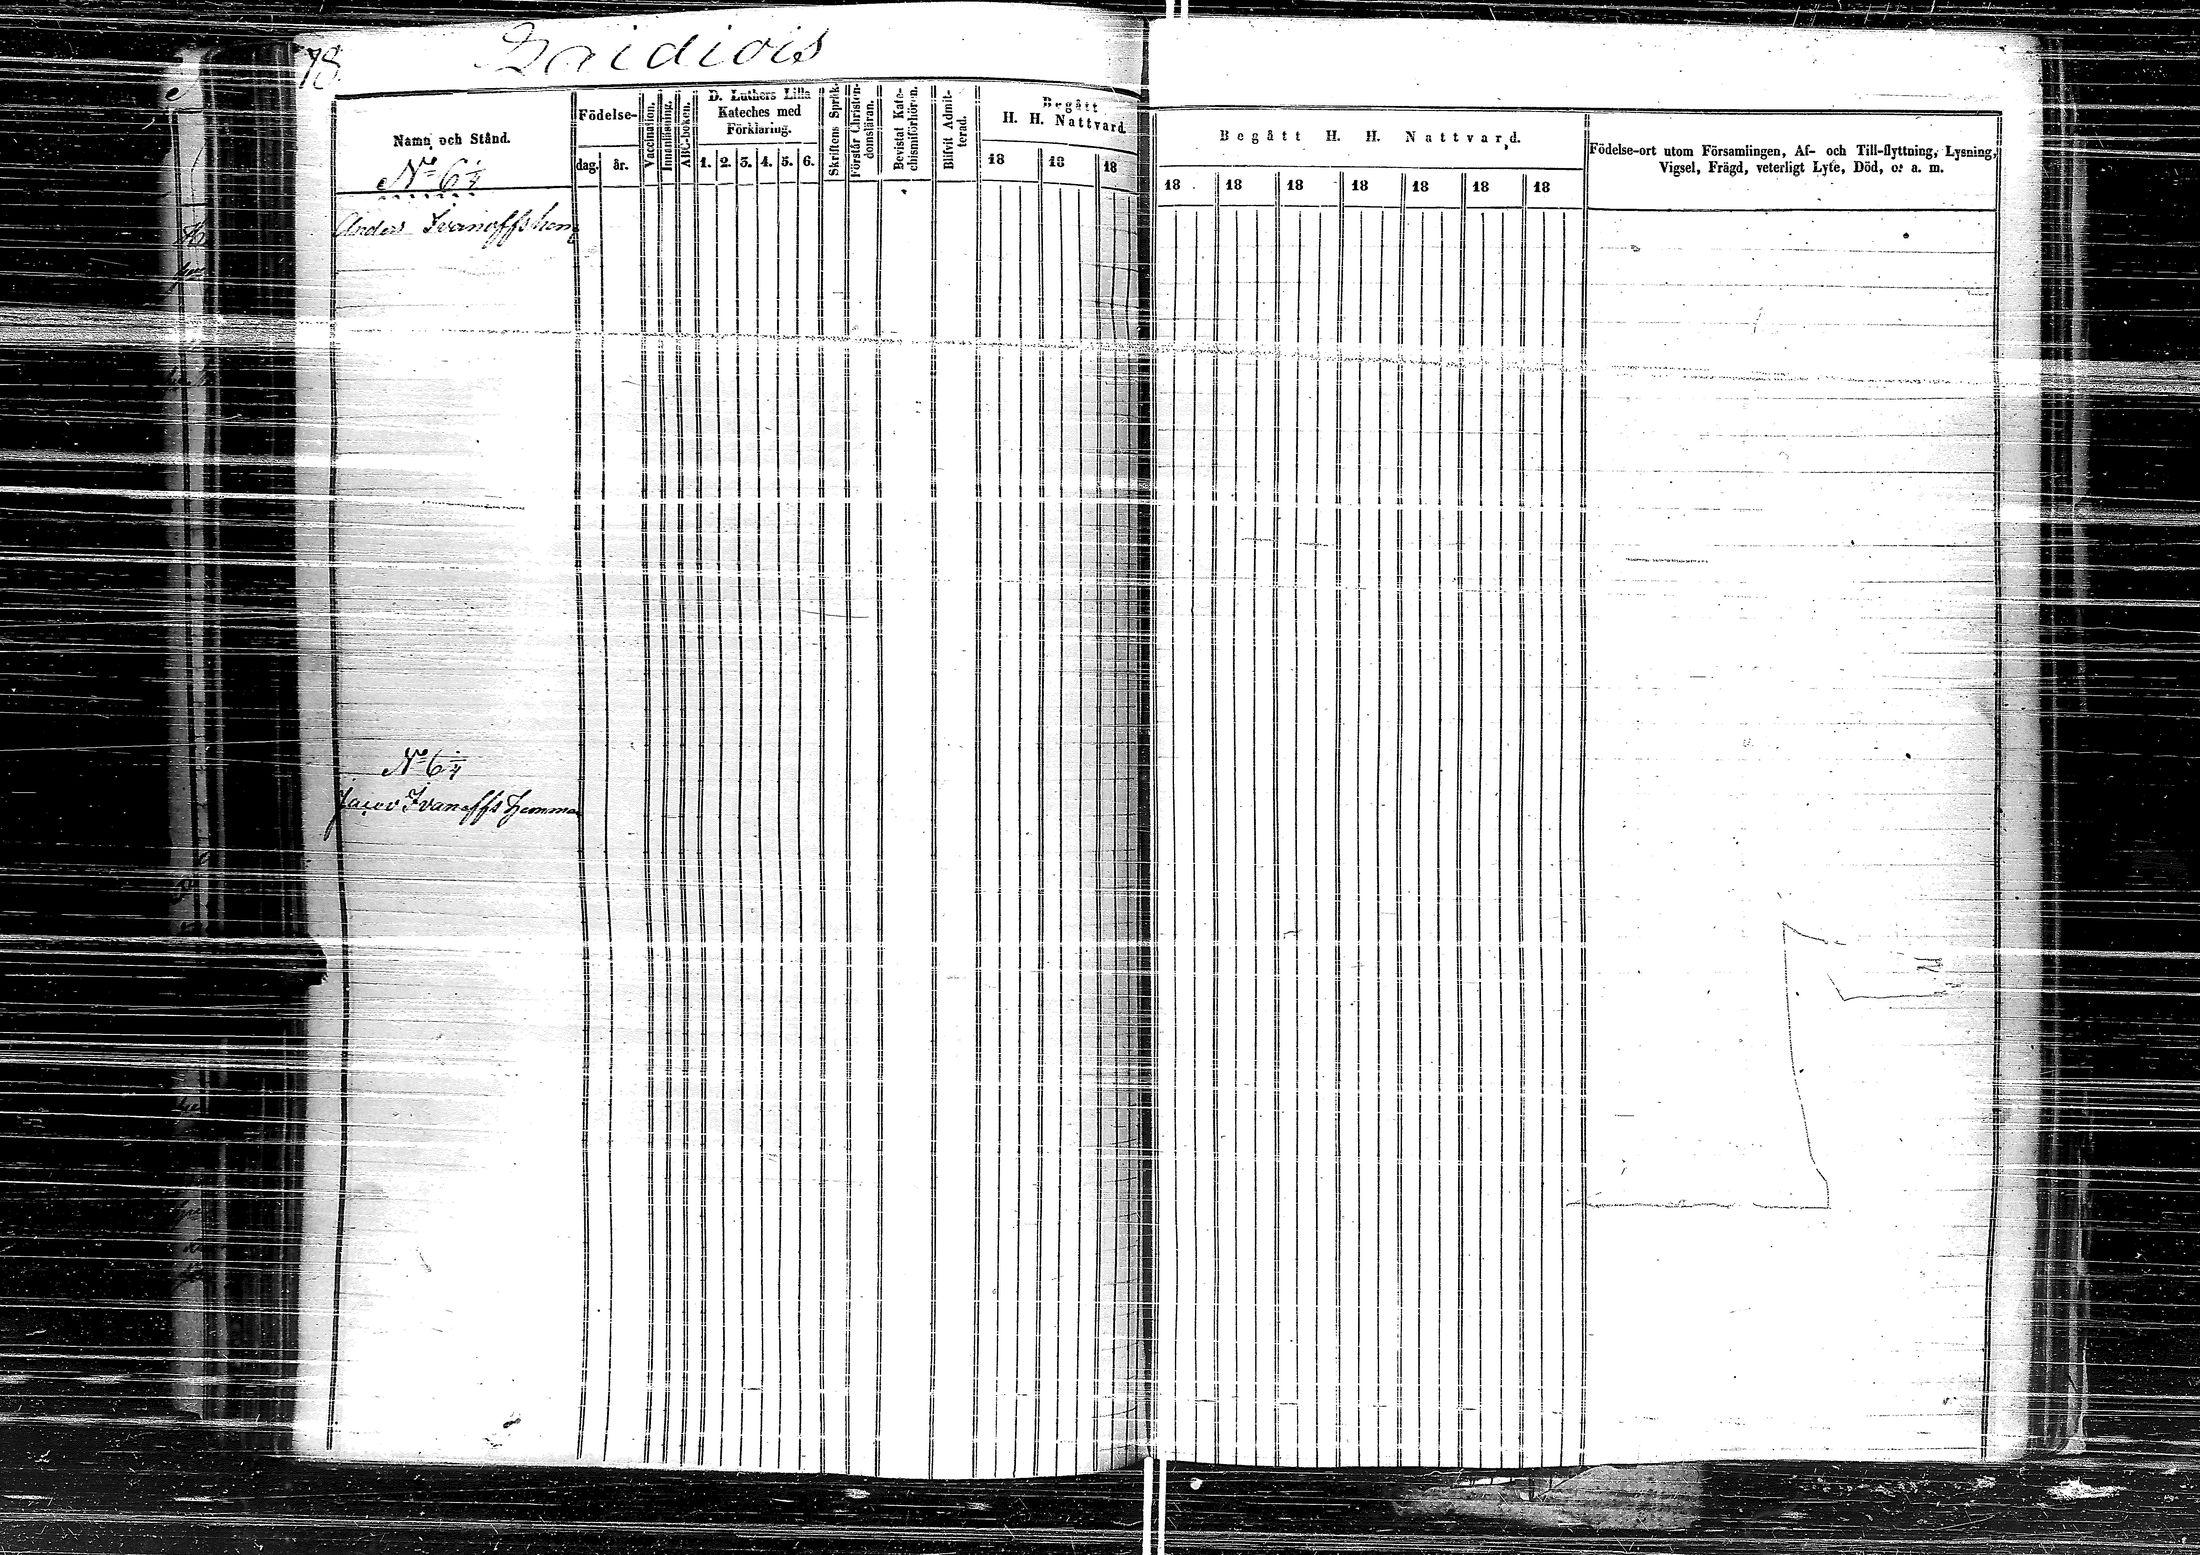 78.
Namn och Stånd.
Födelse-
dag.
år.
Vaccination.
Innanläsning.
ABC-boken.
D. Luthers Lilla
Kateches med
Förklaring.
1. 2. 3. 4. 5. 6.
Skriftens Språk.
Förstår Christen-
domsläran.
Bevistat Kate-
chismiförhören.
Blifvit Admit-
terad.
Begått
H. H. Nattvard
18 18 18
No 6 1/4
Anders Ivanoffs hem
No 6 1/4
Jacob Ivanoffs Hemma
Begått H. H. Nattvard.
18 18 18 18 18 18 18
Födelse-ort utom Församlingen, Af- och Till-flyttning, Lysning,
Vigsel, Frägd, veterligt Lyte, Död, o. a. m.